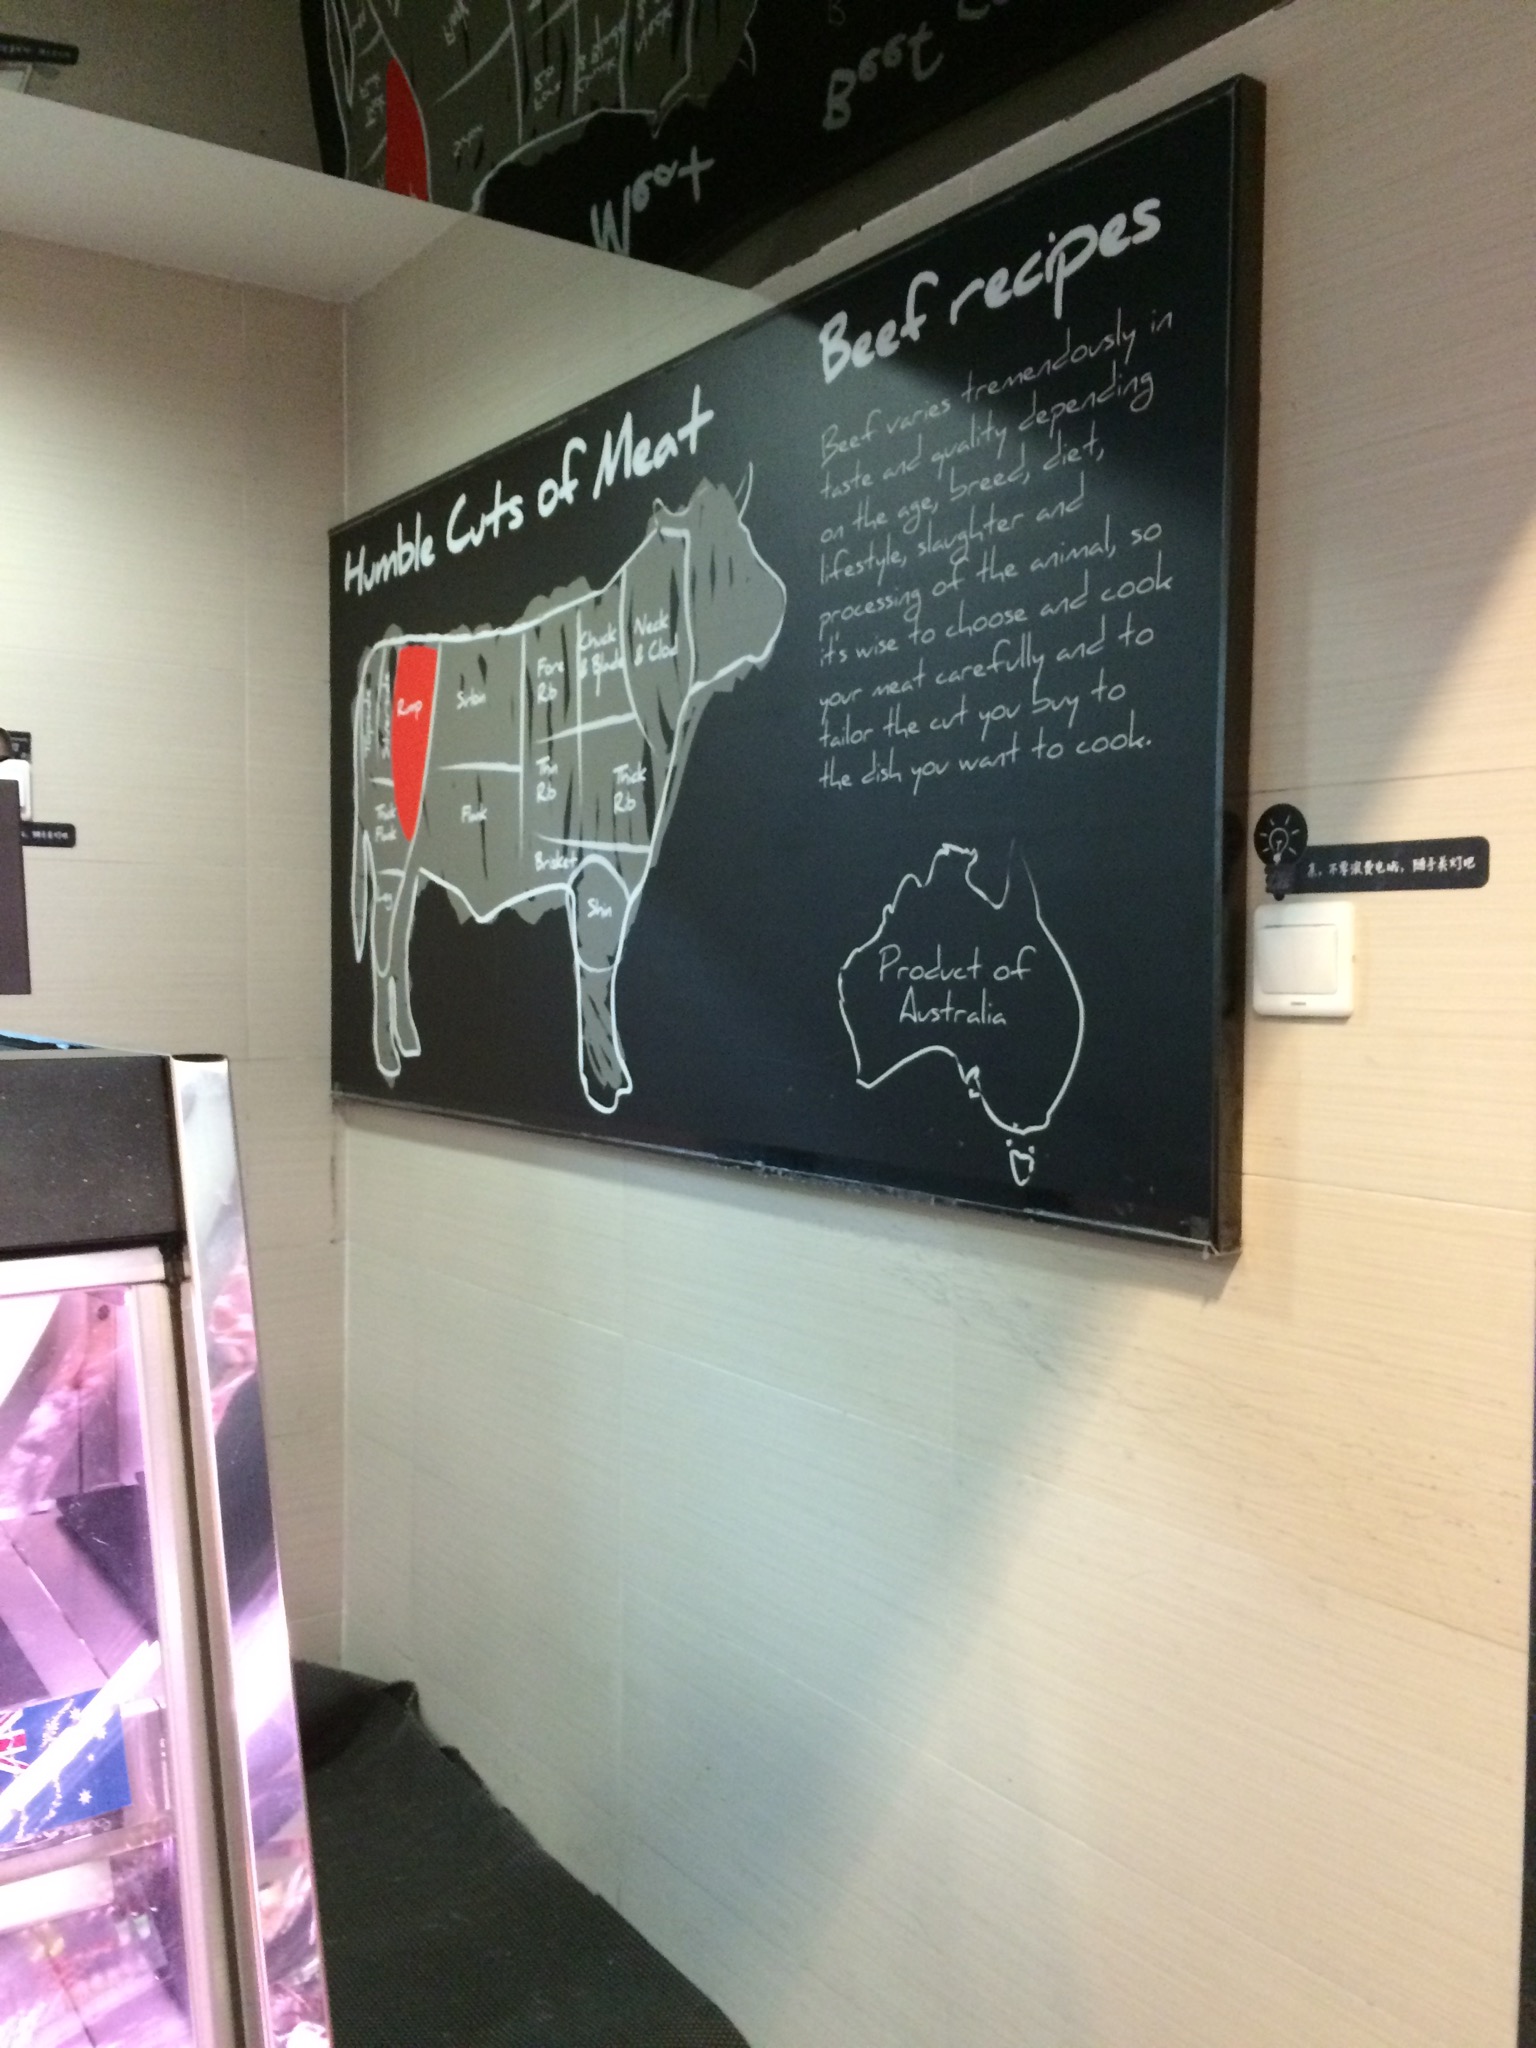 Humble Cuts of Meat
Rump
Sirloin
Fore
Rib
Chuck
& Blade
Neck
& Clod
Thick
Flank
Flank
Thin
Rib
Thick
Rib
Brisket
Leg
Shin
Beef recipes
Beef varies tremendously in
taste and quality depending
on the age, breed, diet,
lifestyle, slaughter and
processing of the animal, so
it's wise to choose and cook
your meat carefully and to
tailor the cut you buy to
the dish you want to cook.
Product of
Australia
不要浪费电哦，随手关灯吧